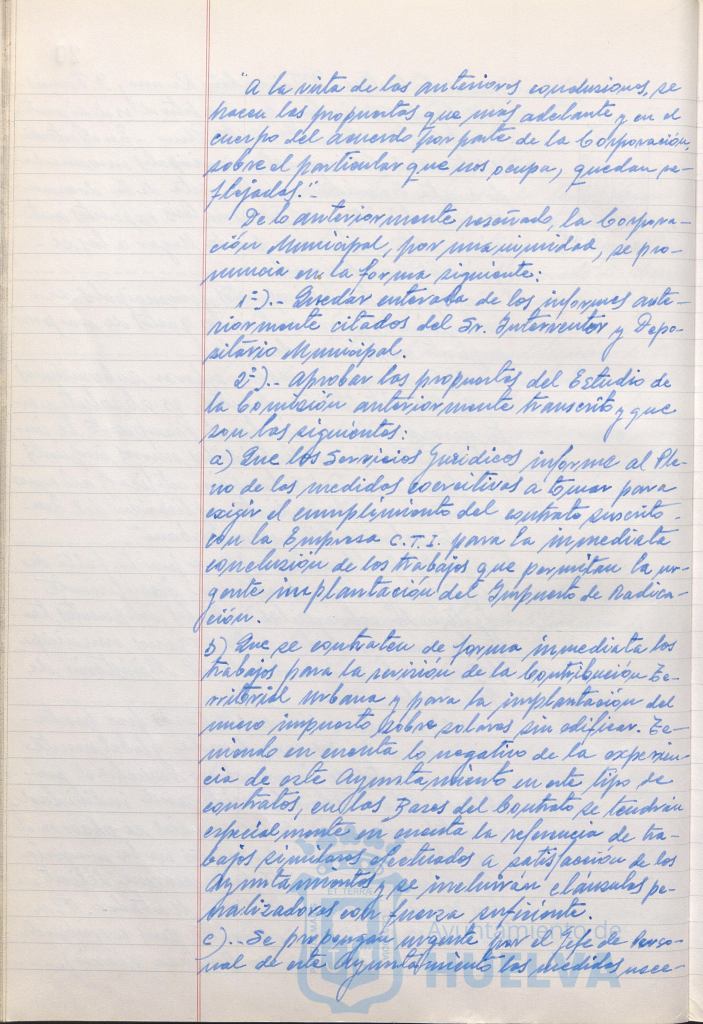 "A la vista de las anteriores conclusiones, se
hacen las propuestas que más adelante y en el
cuerpo del acuerdo por parte de la Corporación,
sobre el particular que nos ocupa, quedan re-
flejadas."-
De lo anteriormente reseñado, la Corpora-
ción Municipal, por unanimidad, se pro-
nuncia en la forma siguiente:
1º).- Quedar enterada de los informes ante-
riormente citados del Sr. Interventor y Depo-
sitario Municipal.
2º).- Aprobar las propuestas del Estudio de
la Comisión anteriormente transcrito y que
son las siguientes:
a) Que los Servicios Jurídicos informe al Ple-
no de las medidas coercitivas a tomar para
exigir el cumplimiento del contrato suscrito
con la Empresa C.T.I. para la inmediata
conclusión de los trabajos que permitan la ur-
gente implantación del Impuesto de Radica-
ción.
b) Que se contraten de forma inmediata los
trabajos para la revisión de la Contribución Te-
rritorial Urbana y para la implantación del
nuevo impuesto sobre solares sin edificar. Te-
niendo en cuenta lo negativo de la experien-
cia de este Ayuntamiento en este tipo de
contratos, en las Bases del Contrato se tendrán
especialmente en cuenta la referencia de tra-
bajos similares efectuados a satisfacción de los
Ayuntamientos y se incluirán cláusulas pe-
nalizadoras con fuerza suficiente.
c).- Se propongan urgente por el Jefe de Perso-
nal de este Ayuntamiento las medidas nece-
Ayuntamiento de
HUELVA